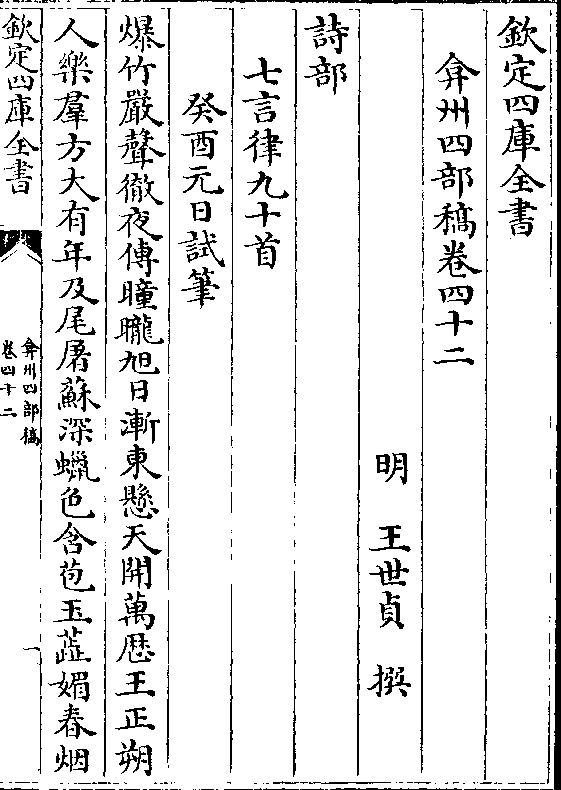 欽定四庫全書
弇州四部稿卷四十二
明　王世貞　撰
詩部
七言律九十首
癸酉元日試筆
爆竹嚴聲徹夜傳曈曨旭日漸東懸天開萬歴王正朔
人樂羣方大有年及尾屠蘇深蠟色含苞玉蘂媚春烟
欽定四庫全書
弇州四部稿
卷四十二
一